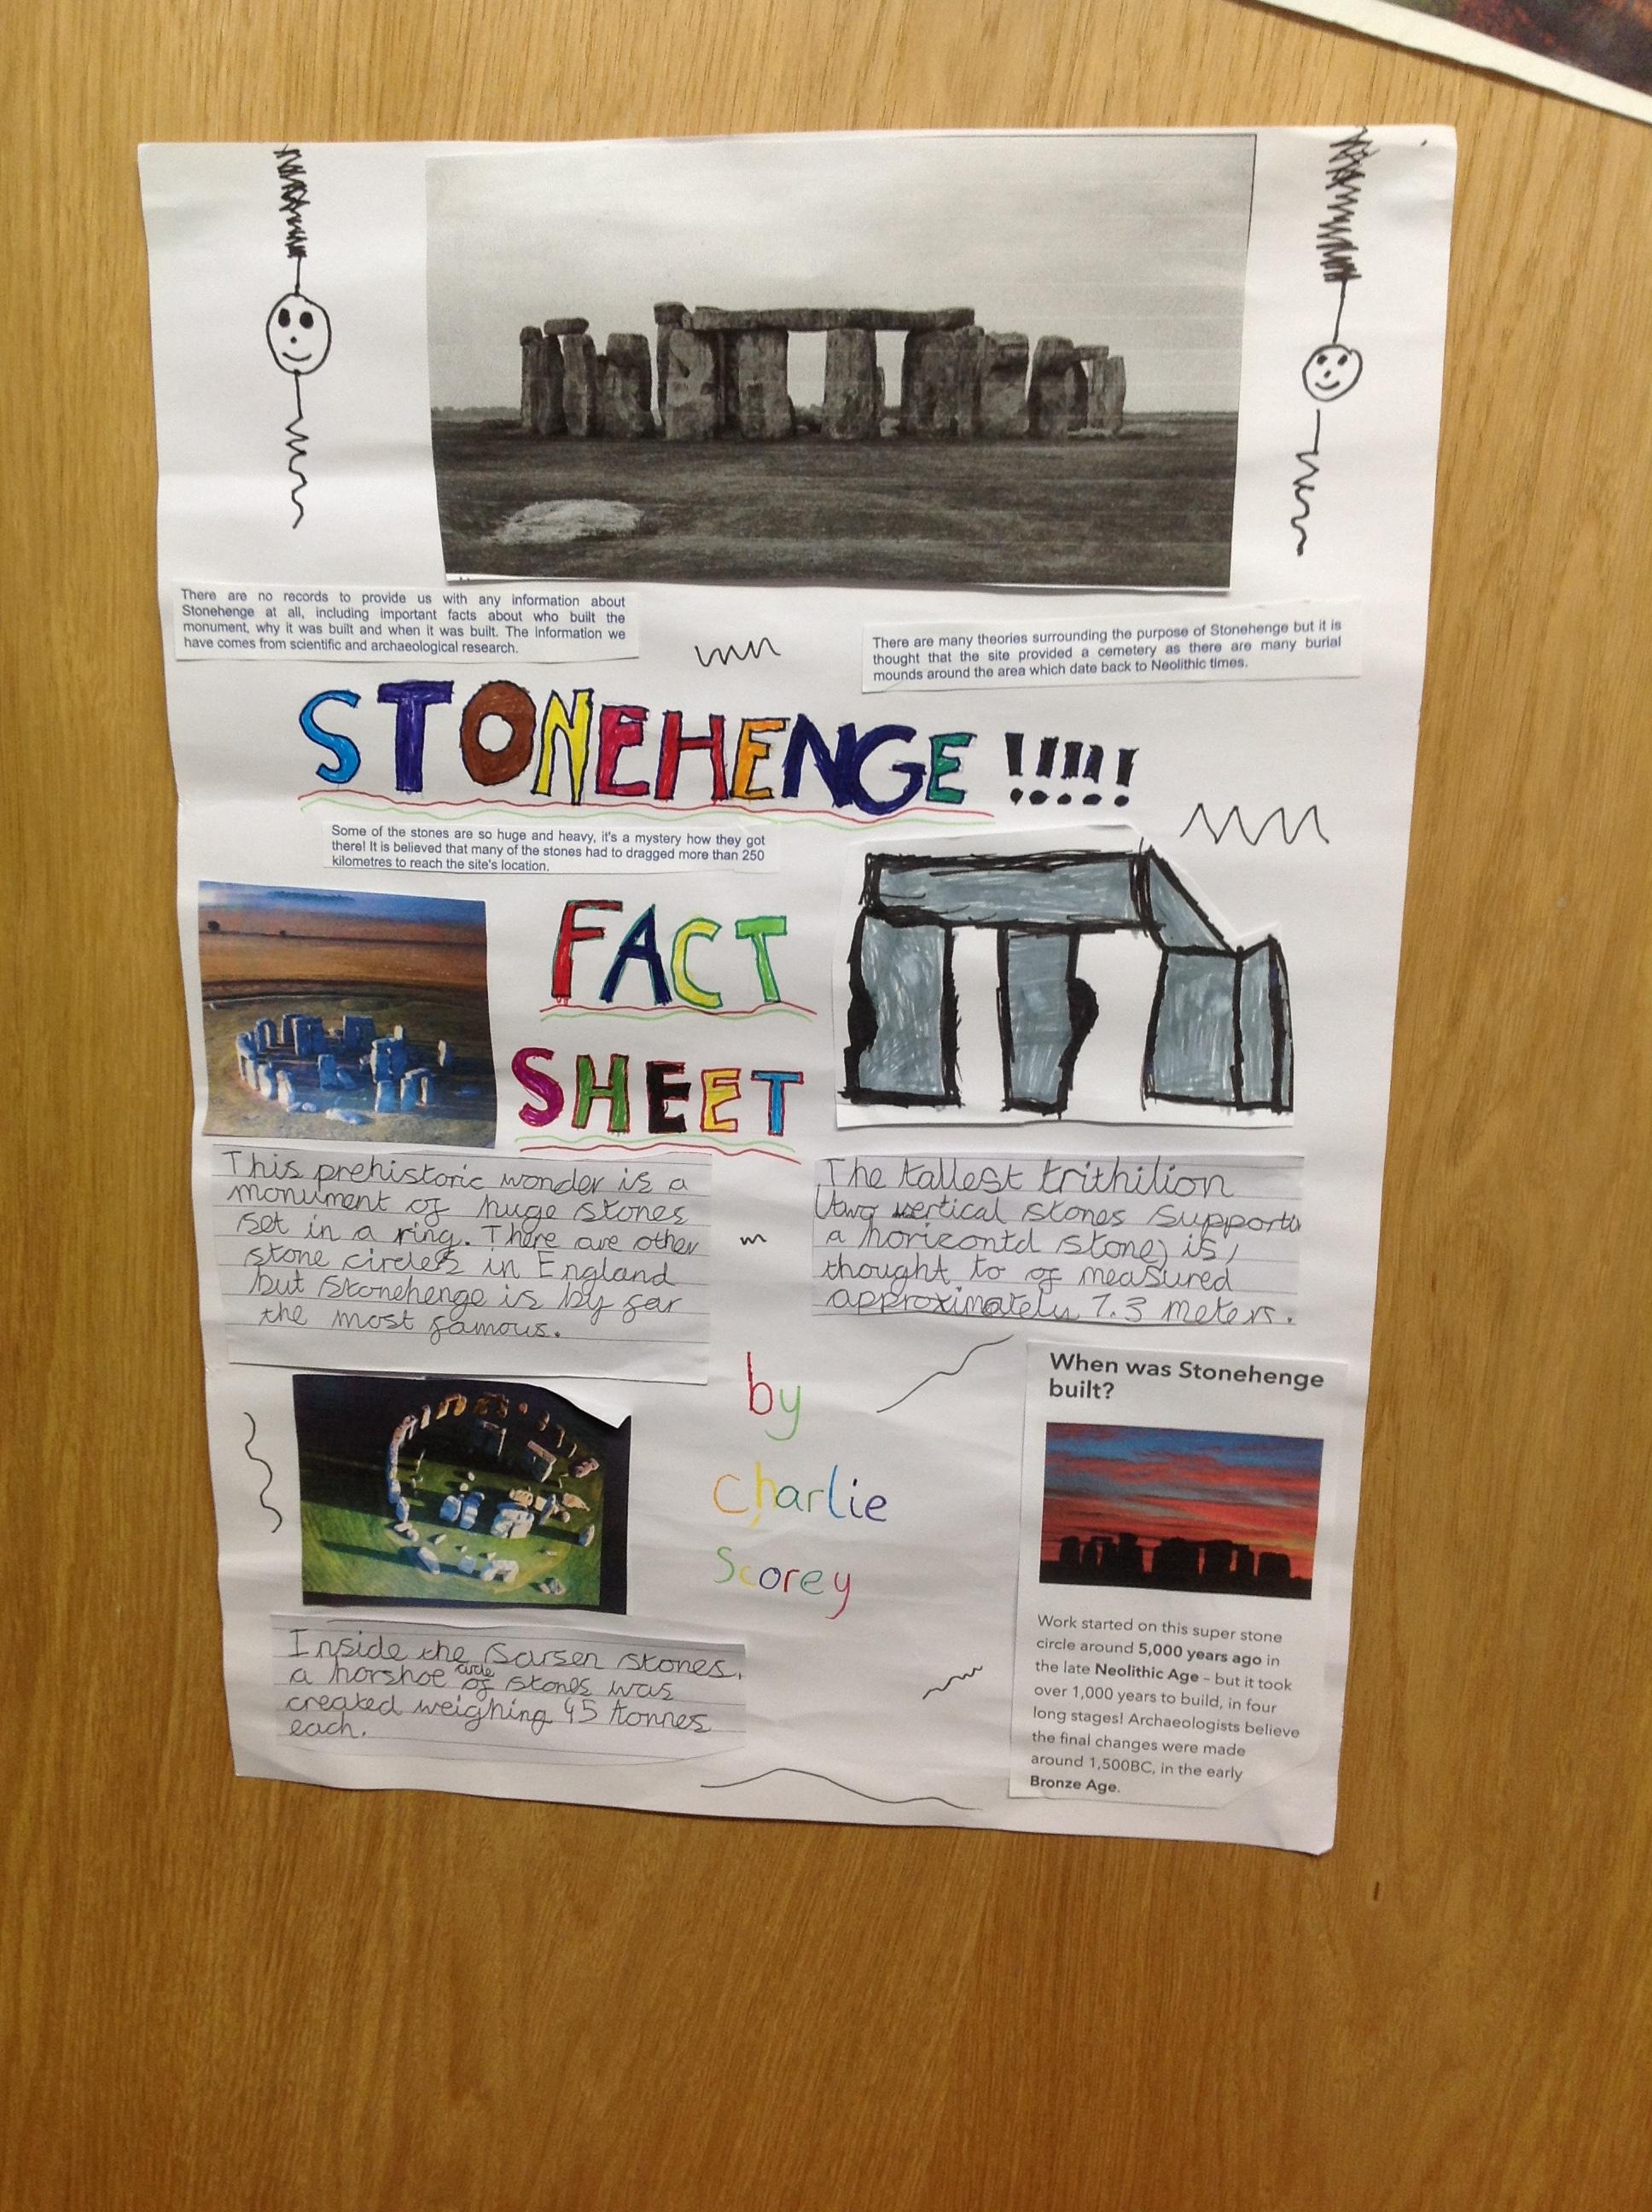 There are no records to provide us with any information about
Stonehenge at all, including important facts about who built the
monument, why it was built and when it was built. The information we
have comes from scientific and archaeological research.
There are many theories surrounding the purpose of Stonehenge but it is
thought that the site provided a cemetery as there are many burial
mounds around the area which date back to Neolithic times.
STONEHENGE !!!!!
Some of the stones are so huge and heavy, it's a mystery how they got
there! It is believed that many of the stones had to dragged more than 250
kilometres to reach the site's location.
FACT
SHEET
This prehistoric wonder is a
monument of huge stones
set in a ring. There are other
stone circles in England
but Stonehenge is by far
the most famous.
The tallest trithilion
(two vertical stones supports
a horizontd stone) is,
thought to of measured
approximately 7.3 meters.
by
charlie
Scorey
Inside the sarsen stones,
a horshoe circle of stones was
created weighing 45 tonnes
each.
When was Stonehenge
built?
Work started on this super stone
circle around 5,000 years ago in
the late Neolithic Age – but it took
over 1,000 years to build, in four
long stages! Archaeologists believe
the final changes were made
around 1,500BC, in the early
Bronze Age.